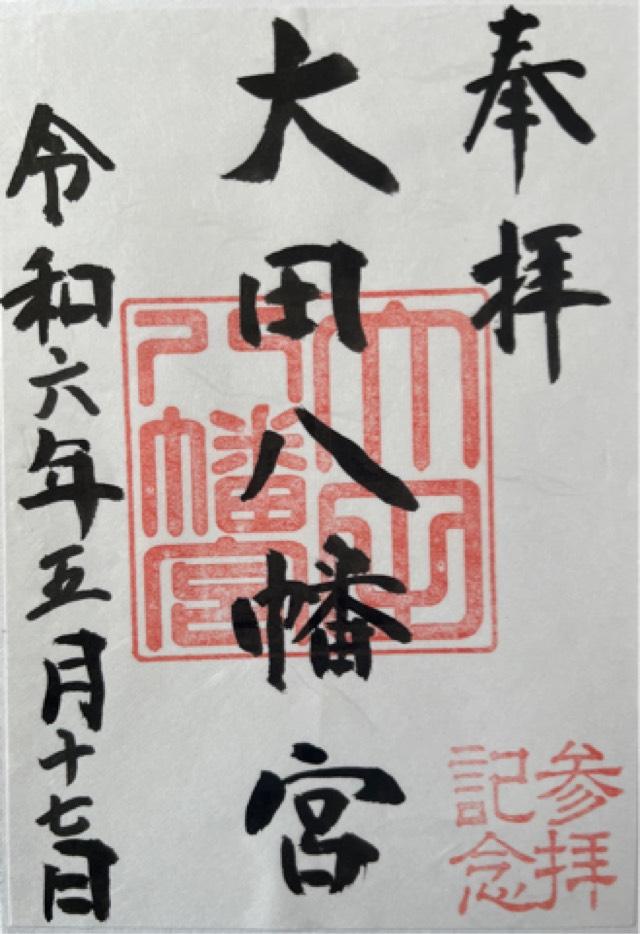 奉拝
大田八幡宮
令和六年五月十七日
大田八幡宮
参拝
記念